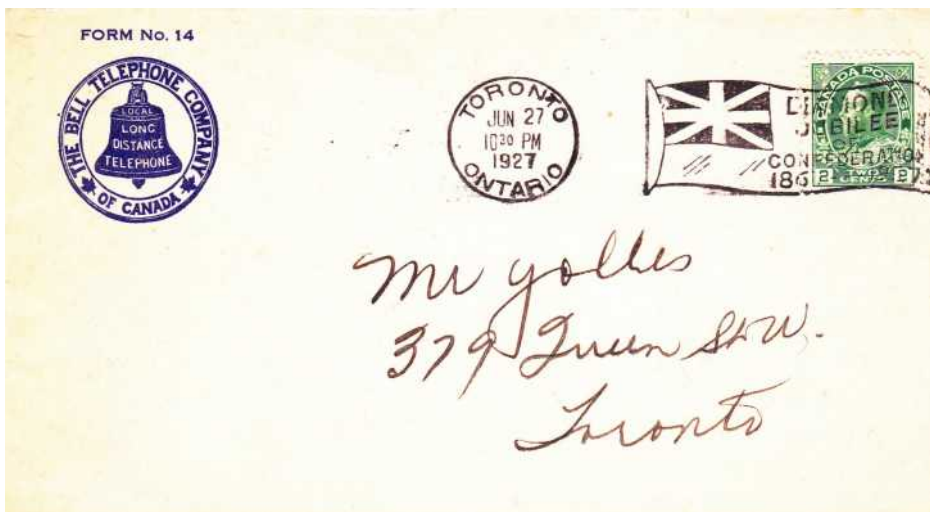 FORM No. 14
THE BELL TELEPHONE COMPANY
OF CANADA
LOCAL
LONG
DISTANCE
TELEPHONE
TORONTO
JUN 27
10 30 PM
1927
ONTARIO
JUBILEE
OF
CONFEDERATIO
CANADA POSTAGE
2 TWO CENTS 2
Mr
379 Queen St W.
Toronto